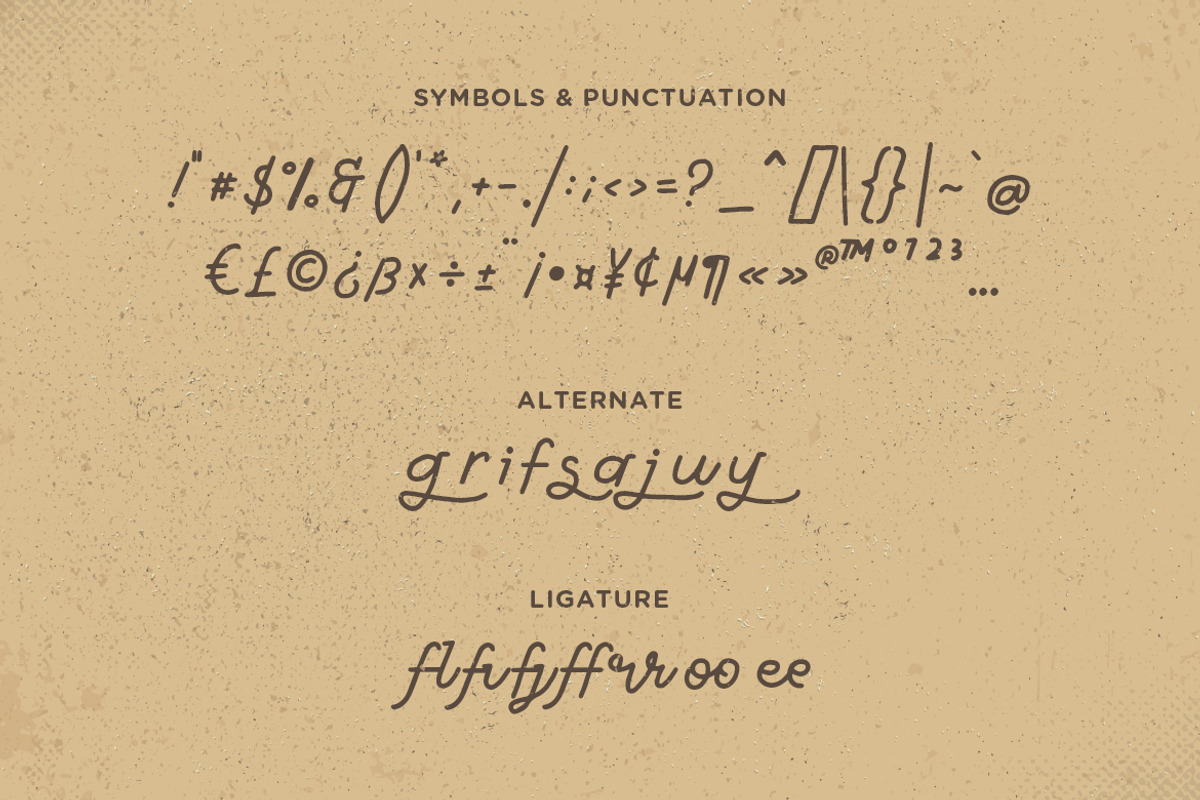 SYMBOLS & PUNCTUATION
!"#$%&()'*,+-./:;<>=?_^[]\{}|~`@
€£©¿βx÷±¨¡•¤¥¢µ¶«»®™°123…
ALTERNATE
grifsajwy
LIGATURE
flfifjffrr oo ee